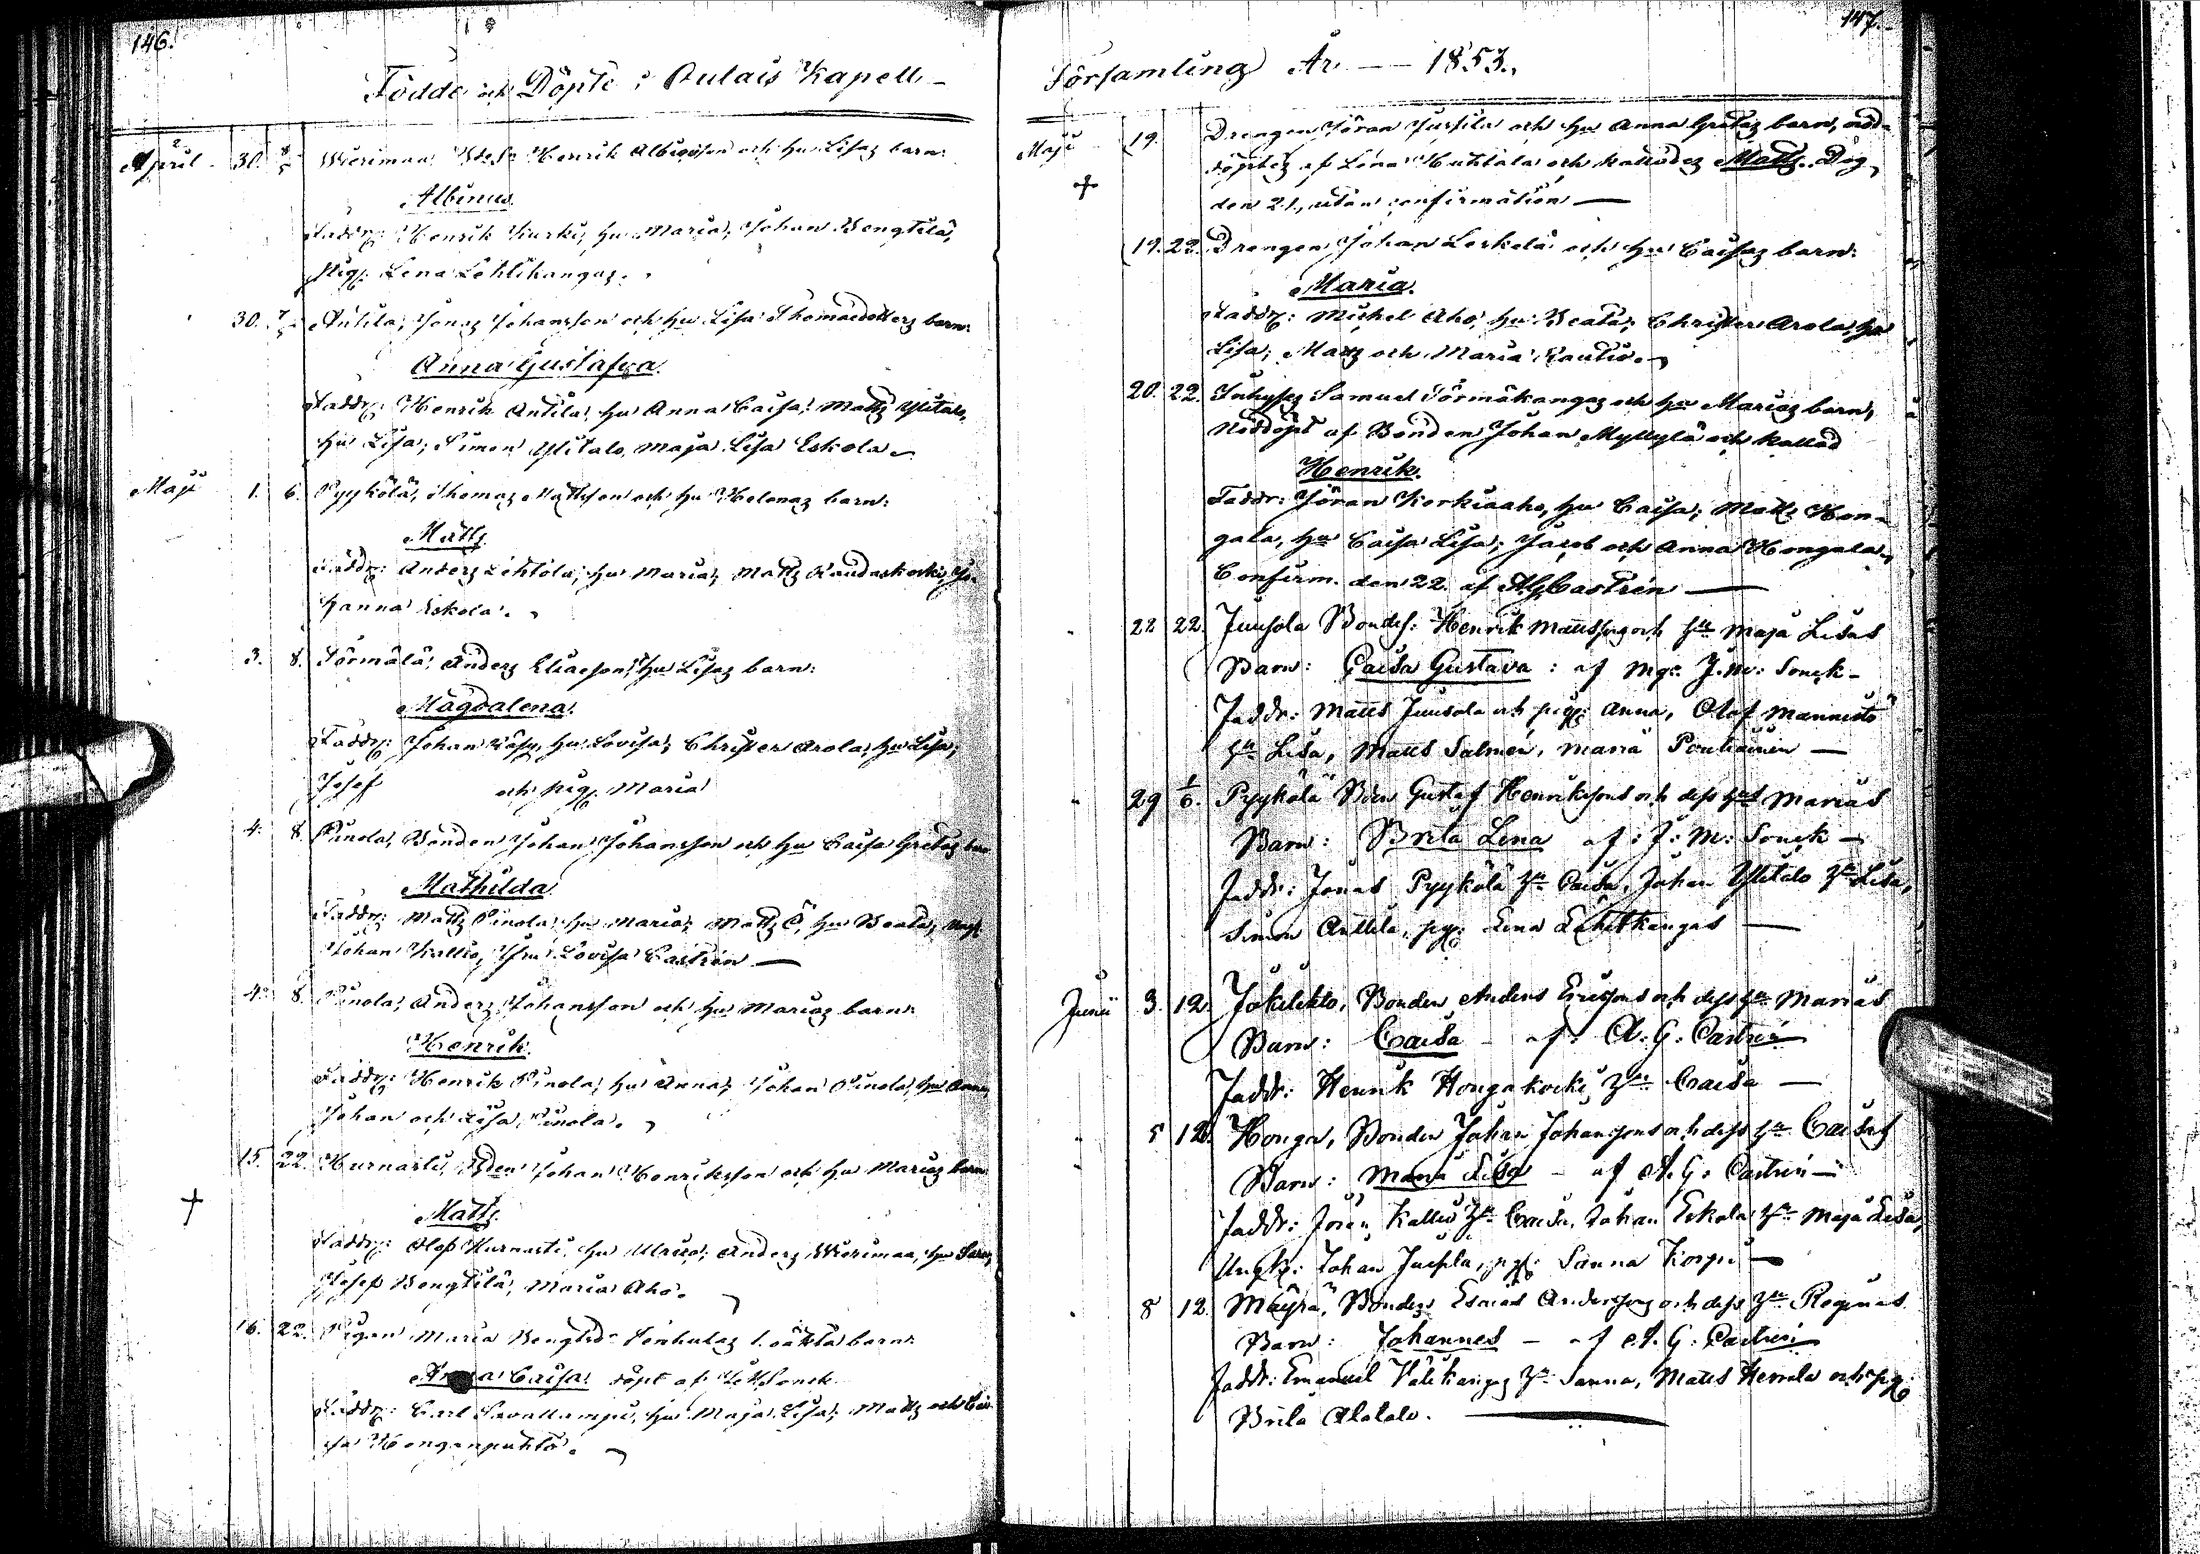 146.
Födde och Döpte i Pulais Kapell
April 30. 8/5 Wierimaa, Henrik Albinsson och hu Lisas barn:
Albinus.
Faddr: Henrik Kurki, hu Maria; Johan Bengtilä,
pig. Lena Lehtikangas.
30. Antila, Jonas Johansson och hu Lisa Thomasdotters barn:
Anna Gustafva.
Faddr: Henrik Antila, hu Anna Caisa; Matts Ylitalo,
hu Lisa; Simon Ylitalo, Maja Lisa Eskola
Maji 1. 6. Pyykölä, Thomas Mattsson och hu Helenas barn:
Matts.
Faddr: Anders Lehtola, hu Maria; Matts Raudaskoski, Jo-
hanna Eskola.
3. 8. Törmälä, Anders Eliaesson, hu Lisas barn:
Magdalena.
Faddr: Johan hu Lovisa; Christer Arola, hu Lisa;
Josef och pig. Maria
4. 8. Pinola, Bonden Johan Johansson och hu Caisa Gretas bar
Mathilda
Faddr: Matts Pinola, hu Maria; Matts hu Beata;
Johan Kallio, Lovisa Castrén
4. 8. Pinola, Anders Johansson och hu Marias barn:
Henrik.
Faddr: Henrik Pinola, hu Anna; Johan Pinola, hu Anna,
Johan och Lisa Pinola.
15. 22. Hurnasti, Johan Henriksson och hu Marias barn
Matts.
Faddr: Olof Hurnasti, hu Ulrica; Anders Wierimaa, hu Sara;
Josef Bengtilä, Maria Aho.
16. 22. Pigan Maria Bengtsdr o.äkta barn:
Anna Caisa, döpt af Sonck
Faddr: Carl Savallampi, hu Maja Lisa; Matts och Cai-
sa Honganpuhto.
147.
Församling År — 1853.
Maji 19. Drengen Jöran Jussila och hu Anna Gretas barn, nöd-
döptes af Lena Huhtala och kallades Matts. Dog
den 21., utan confirmation
19. 22. Drengen Johan Leskelä och hu Caisas barn:
Maria.
Faddr: Michel Aho, hu Beata; Christer Arola, hu
Lisa; Matts och Maria Rautio.
20. 22. Inhyses Samuel Törmäkangas och hu Marias barn,
Nöddöpt af Bonden Johan Myllylä och kallad
Henrik.
Faddr: Jöran Korkiaaho, hu Caisa; Matts Hon-
gala, hu Caisa Lisa; Jacob och Anna Hongala,
Confirm. den 22. af A.G. Castrén
22 22. Juusola Bondes: Henrik Mattssons och hu Maja Lisas
Barn: Caisa Gustava: af Mgr J.M: Sonck
Faddr: Matts Juusola och pig: Anna, Olof Mannistö
hu Lisa, Matts Salmén, Maria Pouhainen
29 1/6. Pyykölä Bdn Gustaf Henrikssons och dess hus Marias
Barn: Brita Lena af: J: M: Sonck
Faddr: Jonas Pyykölä hu Caisa, Johan Ylitalo hu Lisa,
Simon Anttila, pig: Lena Lehtikangas
Junii 3. 12. Jokilehto, Bonden Anders Ericssons och dess hu Marias
Barn: Caisa af A. G. Castrén
Faddr: Henrik Hongakoski hu Caisa
5 12. Honga, Bonden Johan Johanssons och dess hu Caisas
Barn: Maria Lisa af A. G. Castrén
Faddr: Jöran Kallio hu Caisa, Johan Eskola hu Maja Lisa,
Ungk: Johan Juusola, pig: Sanna Korpi
8 12. Mäyrä, Bondens Esaias Anderssons och dess hu Reginas
Barn: Johannes af A. G. Castrén
Faddr: Emanuel Välikangas hu Sanna, Matts Herrala och pig:
Brita Alatalo.